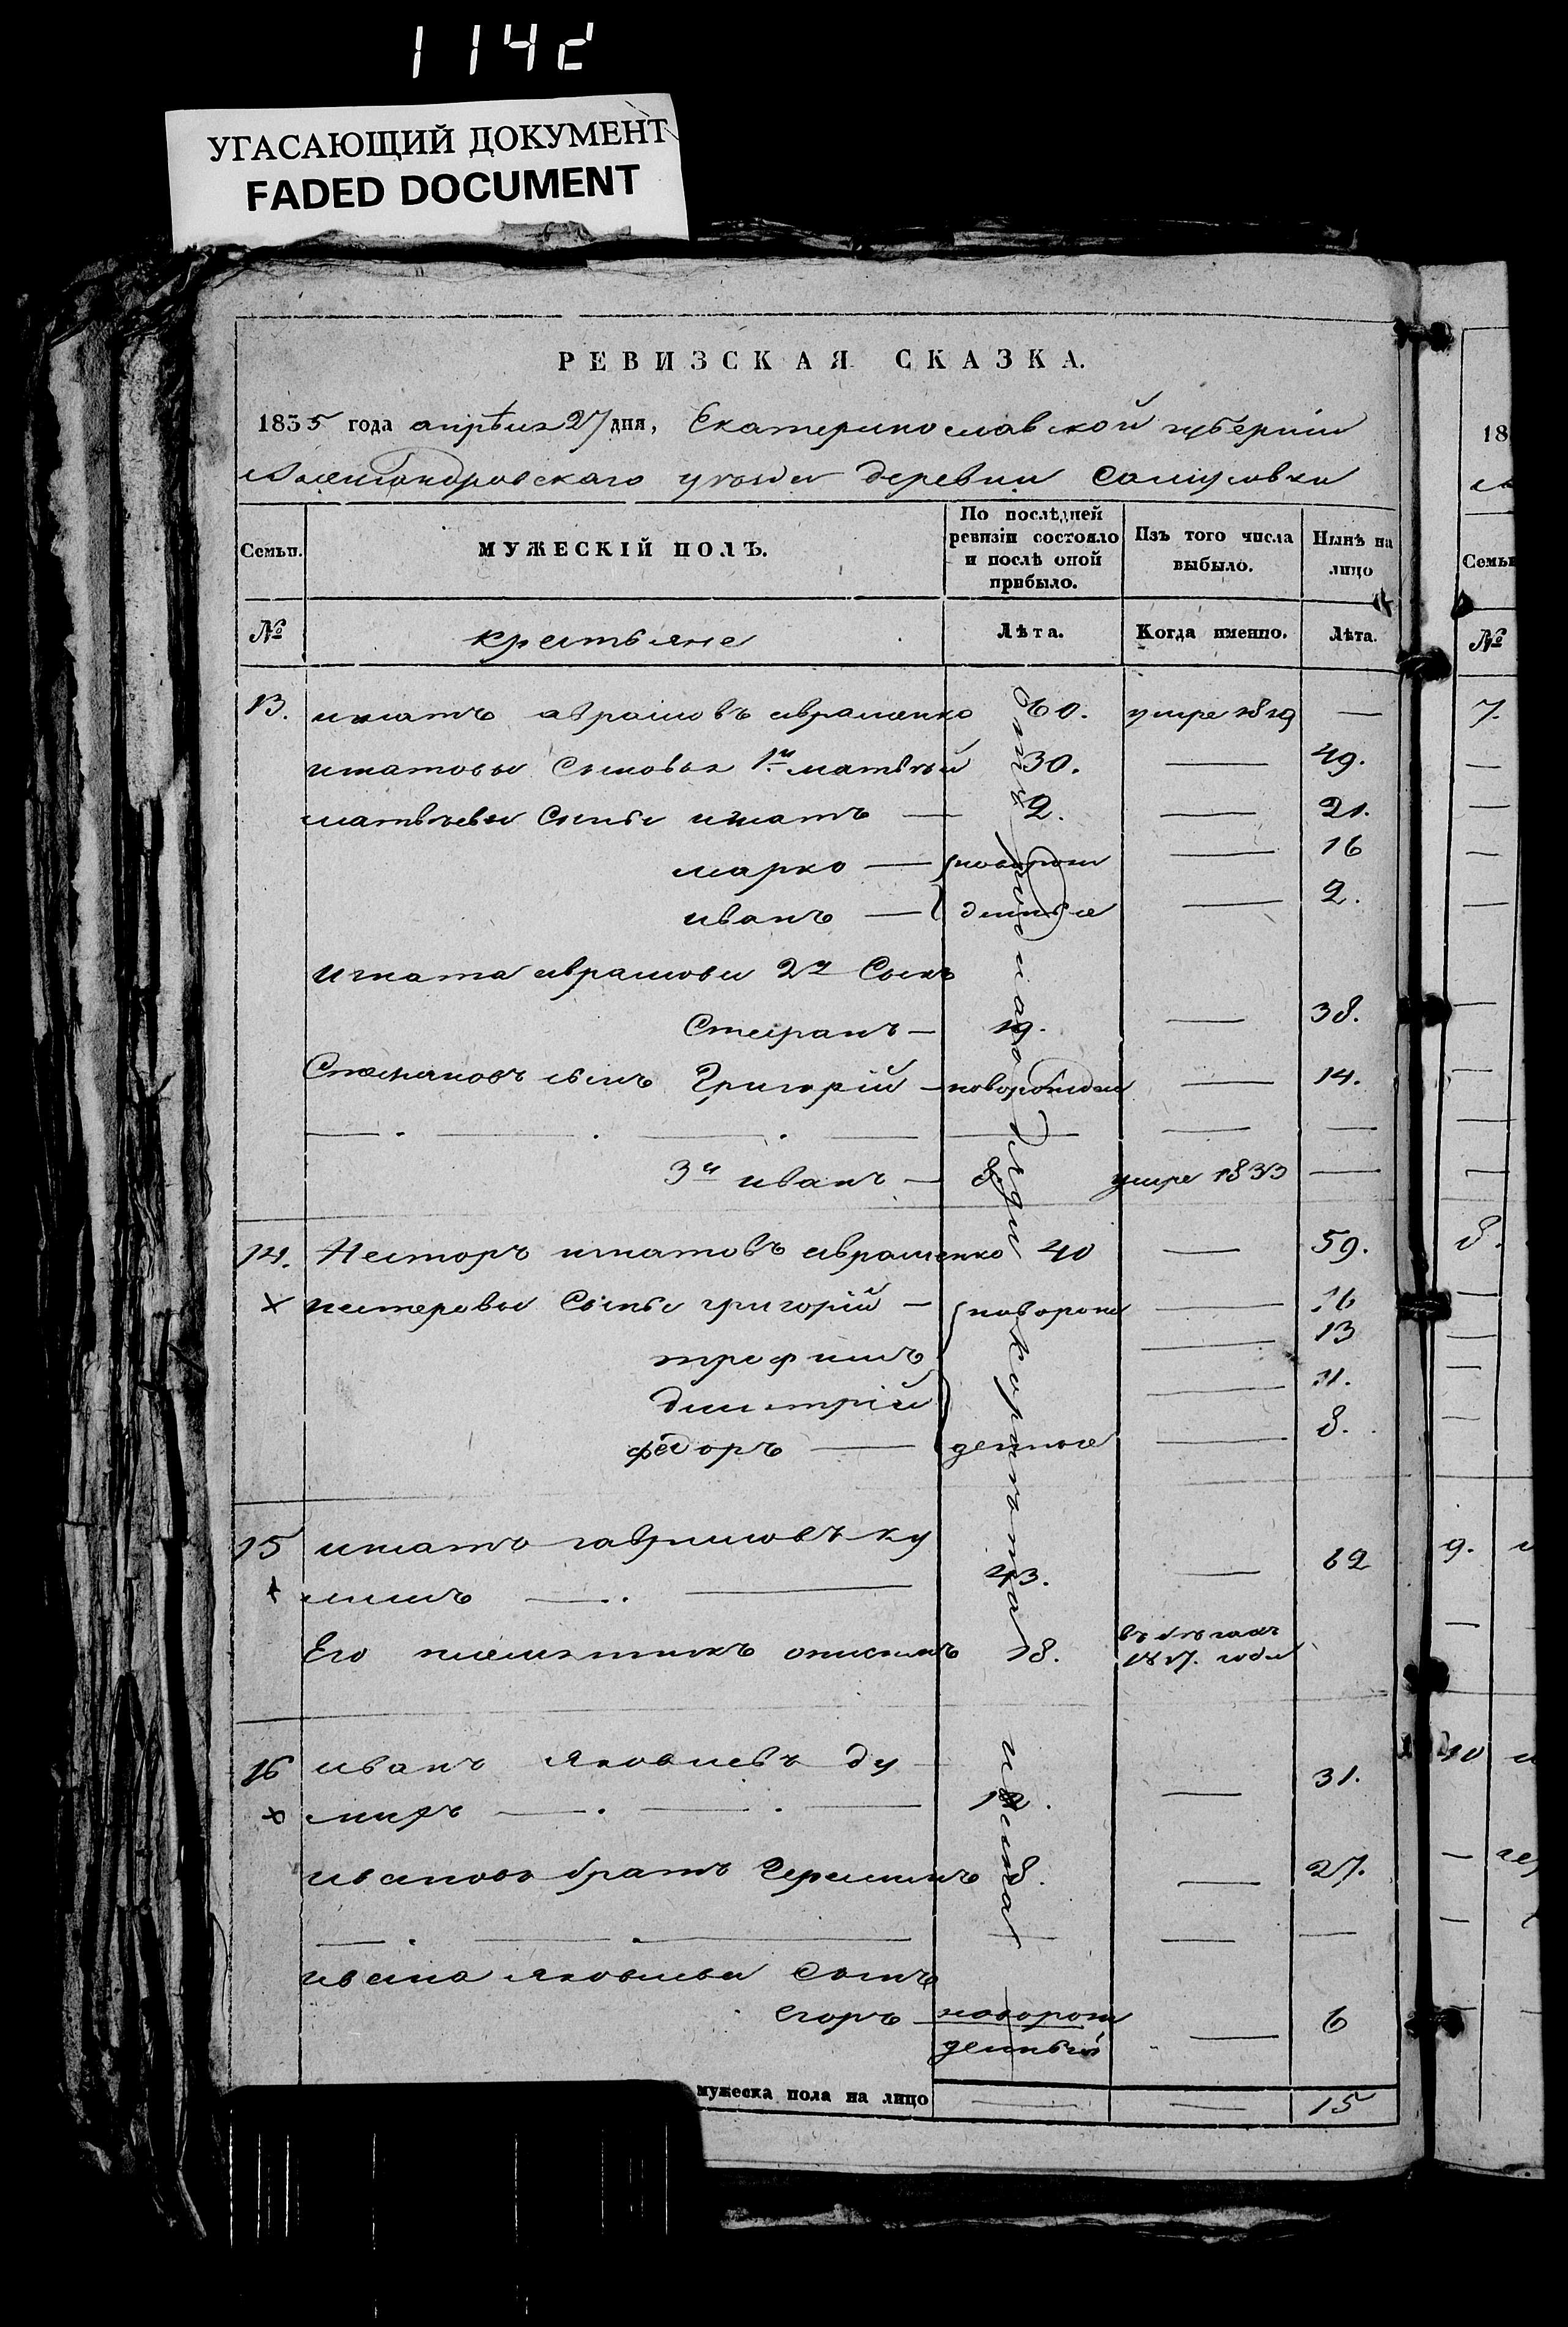 114d
УГАСАЮЩИЙ ДОКУМЕНТ
FADED DOCUMENT
РЕВИЗСКАЯ СКАЗКА.
1835 года апрѣля 27 дня, Екатеринославской губерніи
Александровскаго уѣзда деревни
Семьи. МУЖЕСКІЙ ПОЛЪ. По послѣдней ревизіи состояло и послѣ оной прибыло. Изъ того числа выбыло. Нынѣ на лицо
№ крестьяне Лѣта. Когда именно. Лѣта.
13. игнатъ аврамовъ авраменко 60. умре 1819 —
игнатовы Сыновья 1й матвѣй 30. — 49.
матвѣевы Сыны игнатъ — 2. — 21.
марко — новорож — 16
иванъ —денные — 2.
игната аврамова 2й Сынъ
Степанъ — 19. — 38.
Степановъ сынъ Григорій — новорожден — 14.
3й иванъ — 8 умре 1833 —
14. Несторъ игнатовъ авраменко 40 — 59.
х нестеровы Сыны григорій — новорож — 16
трофимъ — 13
димитрій — 11.
федоръ — денные — 8.
15 игнатъ гавриловъ ку
43. — 62
Его племянникъ 18. въ бѣгахъ 1817. года
16 иванъ Яковлевъ ду
х 12. — 31.
ивановъ братъ 8. — 27.
ивана яковлева Сынъ
егоръ — новорож
денный — 6
мужеска пола на лицо — — 15
18
Семьи
№
7.
8.
9.
10